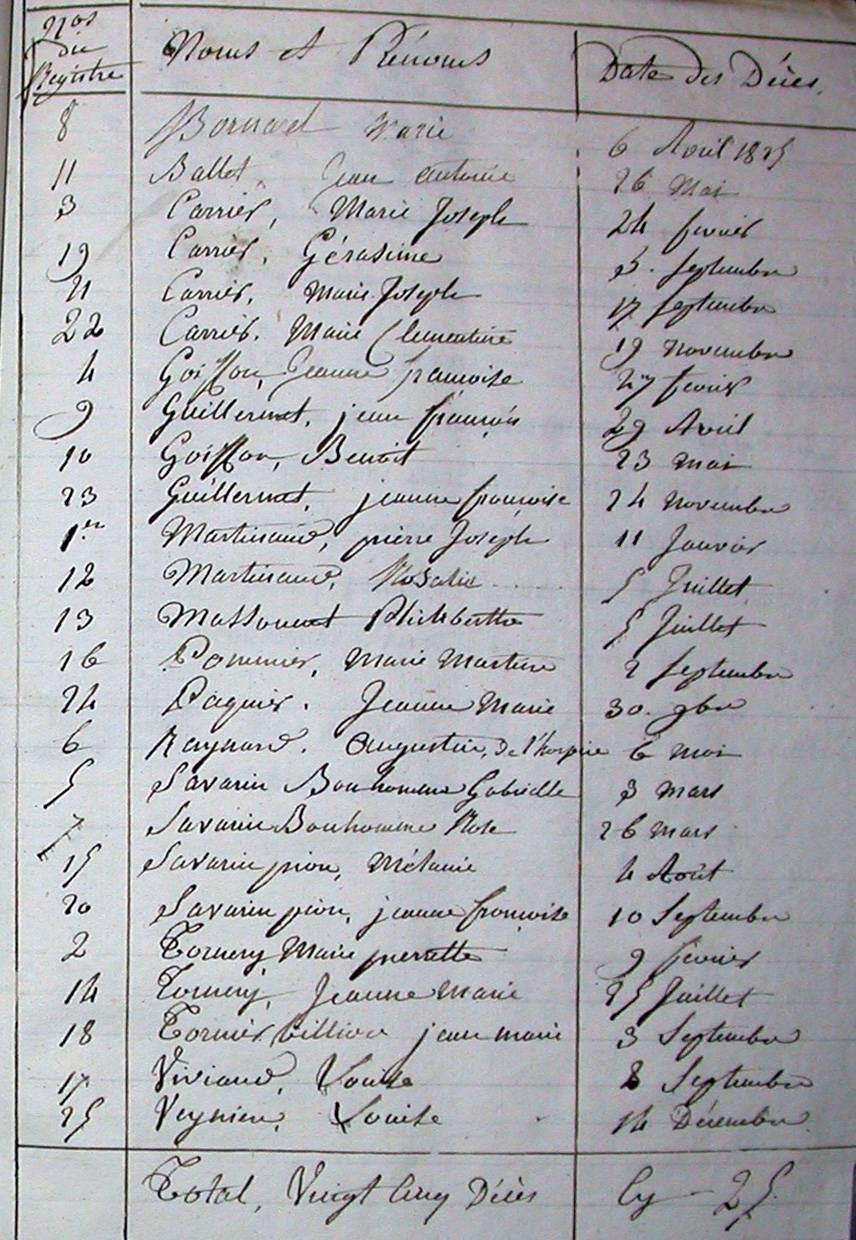 Nos du Registre Noms et Prénoms Date des Décès.
8 Bornard Marie 6 Avril 1825
11 Ballet, Jean Antoine 26 Mai
3 Carrier, Marie Joseph 24 fevrier
19 Carrier, Gérasime 5. Septembre
21 Carrier, Marie Joseph 17 Septembre
22 Carrier. Marie Clementine 19 Novembre
4 Goiffon, Jeanne françoise 27 fevrier
9 Guillermet, jean françois 29 Avril
10 Goiffon, Benoit 23 mai
23 Guillermet, jeanne françoise 24 Novembre
1er Martinand, pierre Joseph 11 Janvier
12 Martinand, Rosalie 5 Juillet
13 Massonnet Philiberthe 5 Juillet
16 Pommier, Marie Martine 2 Septembre
24 Paquier. Jeanne Marie 30. 9bre
6 Raynard. Augustin, de l'hospice 6 mai
5 Savarin Bonhomme Gabrielle 3 mars
7 Savarin Bonhomme Rose 26 mars
15 Savarin pion, Mélanie 4 Août
20 Savarin pion, jeanne françoise 10 Septembre
2 Tornery Marie pierrette 9 fevrier
14 Tornery, Jeanne Marie 25 Juillet
18 Tornier billion jean marie 3 Septembre
17 Viviand, Louise 8 Septembre
25 Veynier, Louise 14 Décembre
Total, Vingt Cinq Décès Cy - 25.